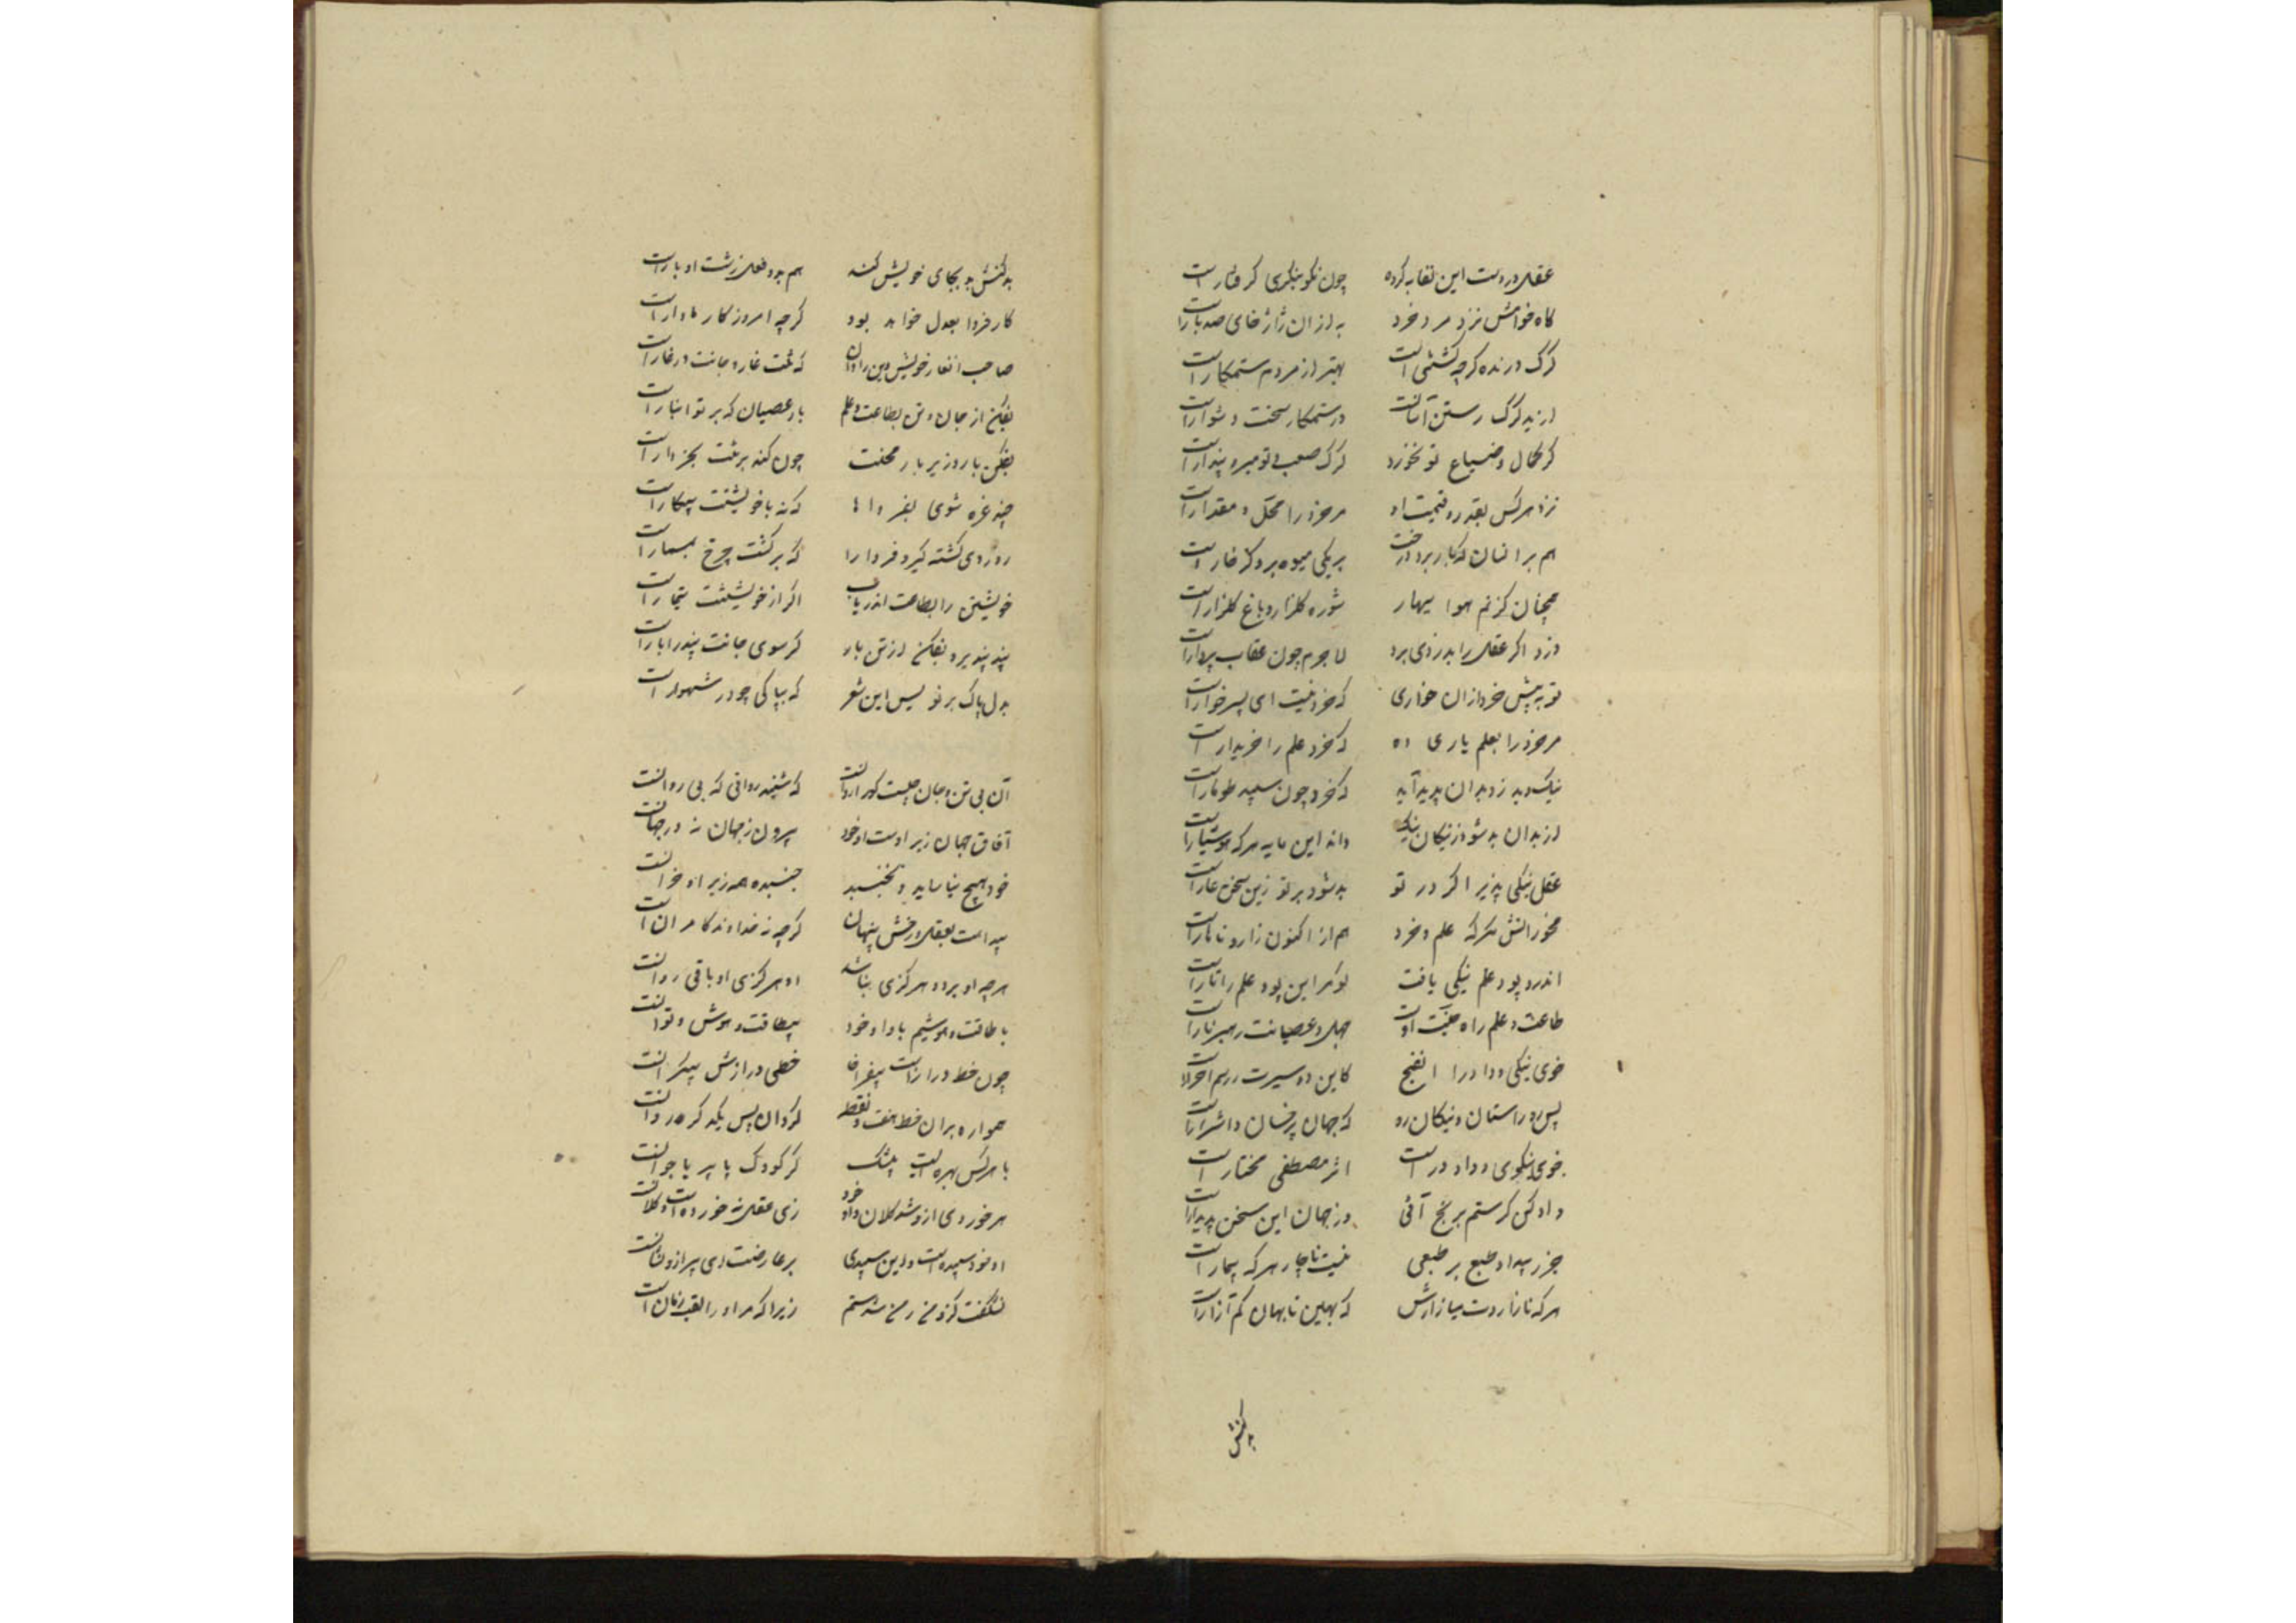 عقل در دست این نفایه گروه چون نکو بنگری گرفتار است
کاه خوامش نزد مرد خرد به از ان ژاژ خای صد بار است
کرک درنده کرچه کشتنی است بهتر از مردم ستمکار است
از بد کرک رستن آسانست وز ستمکار سخت دشوار است
کر بمال و ضیاع تو نخورد کرک صعب تو میر و بندار است
نزد هر کس بقدر و قیمت او مر خرد را محل و مقدار است
هم بر انسان که بار بر دو درخت بر یکی میوه بر دگر خار است
همچنان کز نم هوا ببهار شوره گلزار و باغ گلزار است
دزد اگر عقل را بدزدی برد لاجرم چون عقاب بر دار است
تو به پیش خرد از ان خواری که خرد نیست ای پسر خوار است
مر خرد را بعلم یاری ده که خرد علم را خریدار است
نیک و بد زو بدان پدید آید که خرد چون سپید طومار است
از بدان بد شود ز نیکان نیک داند این مایه هر که هشیار است
عقل نیکی پذیر اگر در تو بد شود بر تو زین سخن عار است
مخور انش هر که علم و خرد هم از اکنون زار و ناهار است
اندر و پود علم نیکی بافت کو مر این پود علم را تار است
طاعت و علم راه جنت اوست جهل و عصیانت رهبر نار است
خوی نیکی و داد را الفنج کاین دو سیرت ز رسم احرار
پس رو راستان و نیکان رو که جهان پر خسان و اشرار است
خوی نیکوی و داد در است اثر مصطفی مختار است
داد کن کر ستم برنج آئی در جهان این سخن پدیدار است
جز بیداد طبع بر طبعی نیست ناچار هر که بیمار است
هر که نازاردت میازارش که بهین نا بهان کم آزار است
بد کنش
بد کنش بد بجای خویش کند هم بدو فعل زشت او بار است
کار فردا بعدل خواهد بود کرچه امروز کار ناوار است
صاحب الغار خویش دین را دان که تنت غار و جانت در غار است
بفکن از جان و تن بطاعت و علم بار عصیان که بر تو انبار است
بفکن بار و زیر بار محنت چون کنه بر تنت بجز دار است
چند غره شوی بفردا ها که نه با خویشتنت پیکار است
روز دی کشته کیر و فردا را که بر گشت چرخ بسمار است
خویشتن را بطاعت اندر یاب اگر از خویشتنت تیمار است
پند پندیر و بفکن از تن بار کر سوی جانت پند را بار است
بدل پاک بر نویس این شعر که بپاکی چو در شهوار است
آن بی تن و جان چیست کو روانست که شنید روانی که بی روانست
آفاق جهان زیر اوست او خود بیرون ز جهان نه در جهانست
خود هیچ نیاساید و نجنبد جنبیده همه زیر او خرانست
پیداست بعقل و ز حس پنهان گرچه نه خداوند کامران است
هرچه او برود هر کزی نباشد او هر کزی او باقی روانست
با طاقت و هوشیم با و او خود بیطاقت و هوش و توانست
چون خط دراز است بیفراخا خطی درازش بیکرانست
همواره بران خط هفت نقطه کردان پس یکدگر دوانست
با هر کس بهره ایست بیشک گر کودک یا پیر یا جوانست
هر خوردی از و شد کلان و او خود زی عقل نه خورد است و کلانست
او خود سپیده است و این سپیدی بر عارضت ای پیر ازو نشانست
نشگفت کزو من زمن شدستم زیرا که مر او را لقب زمان است